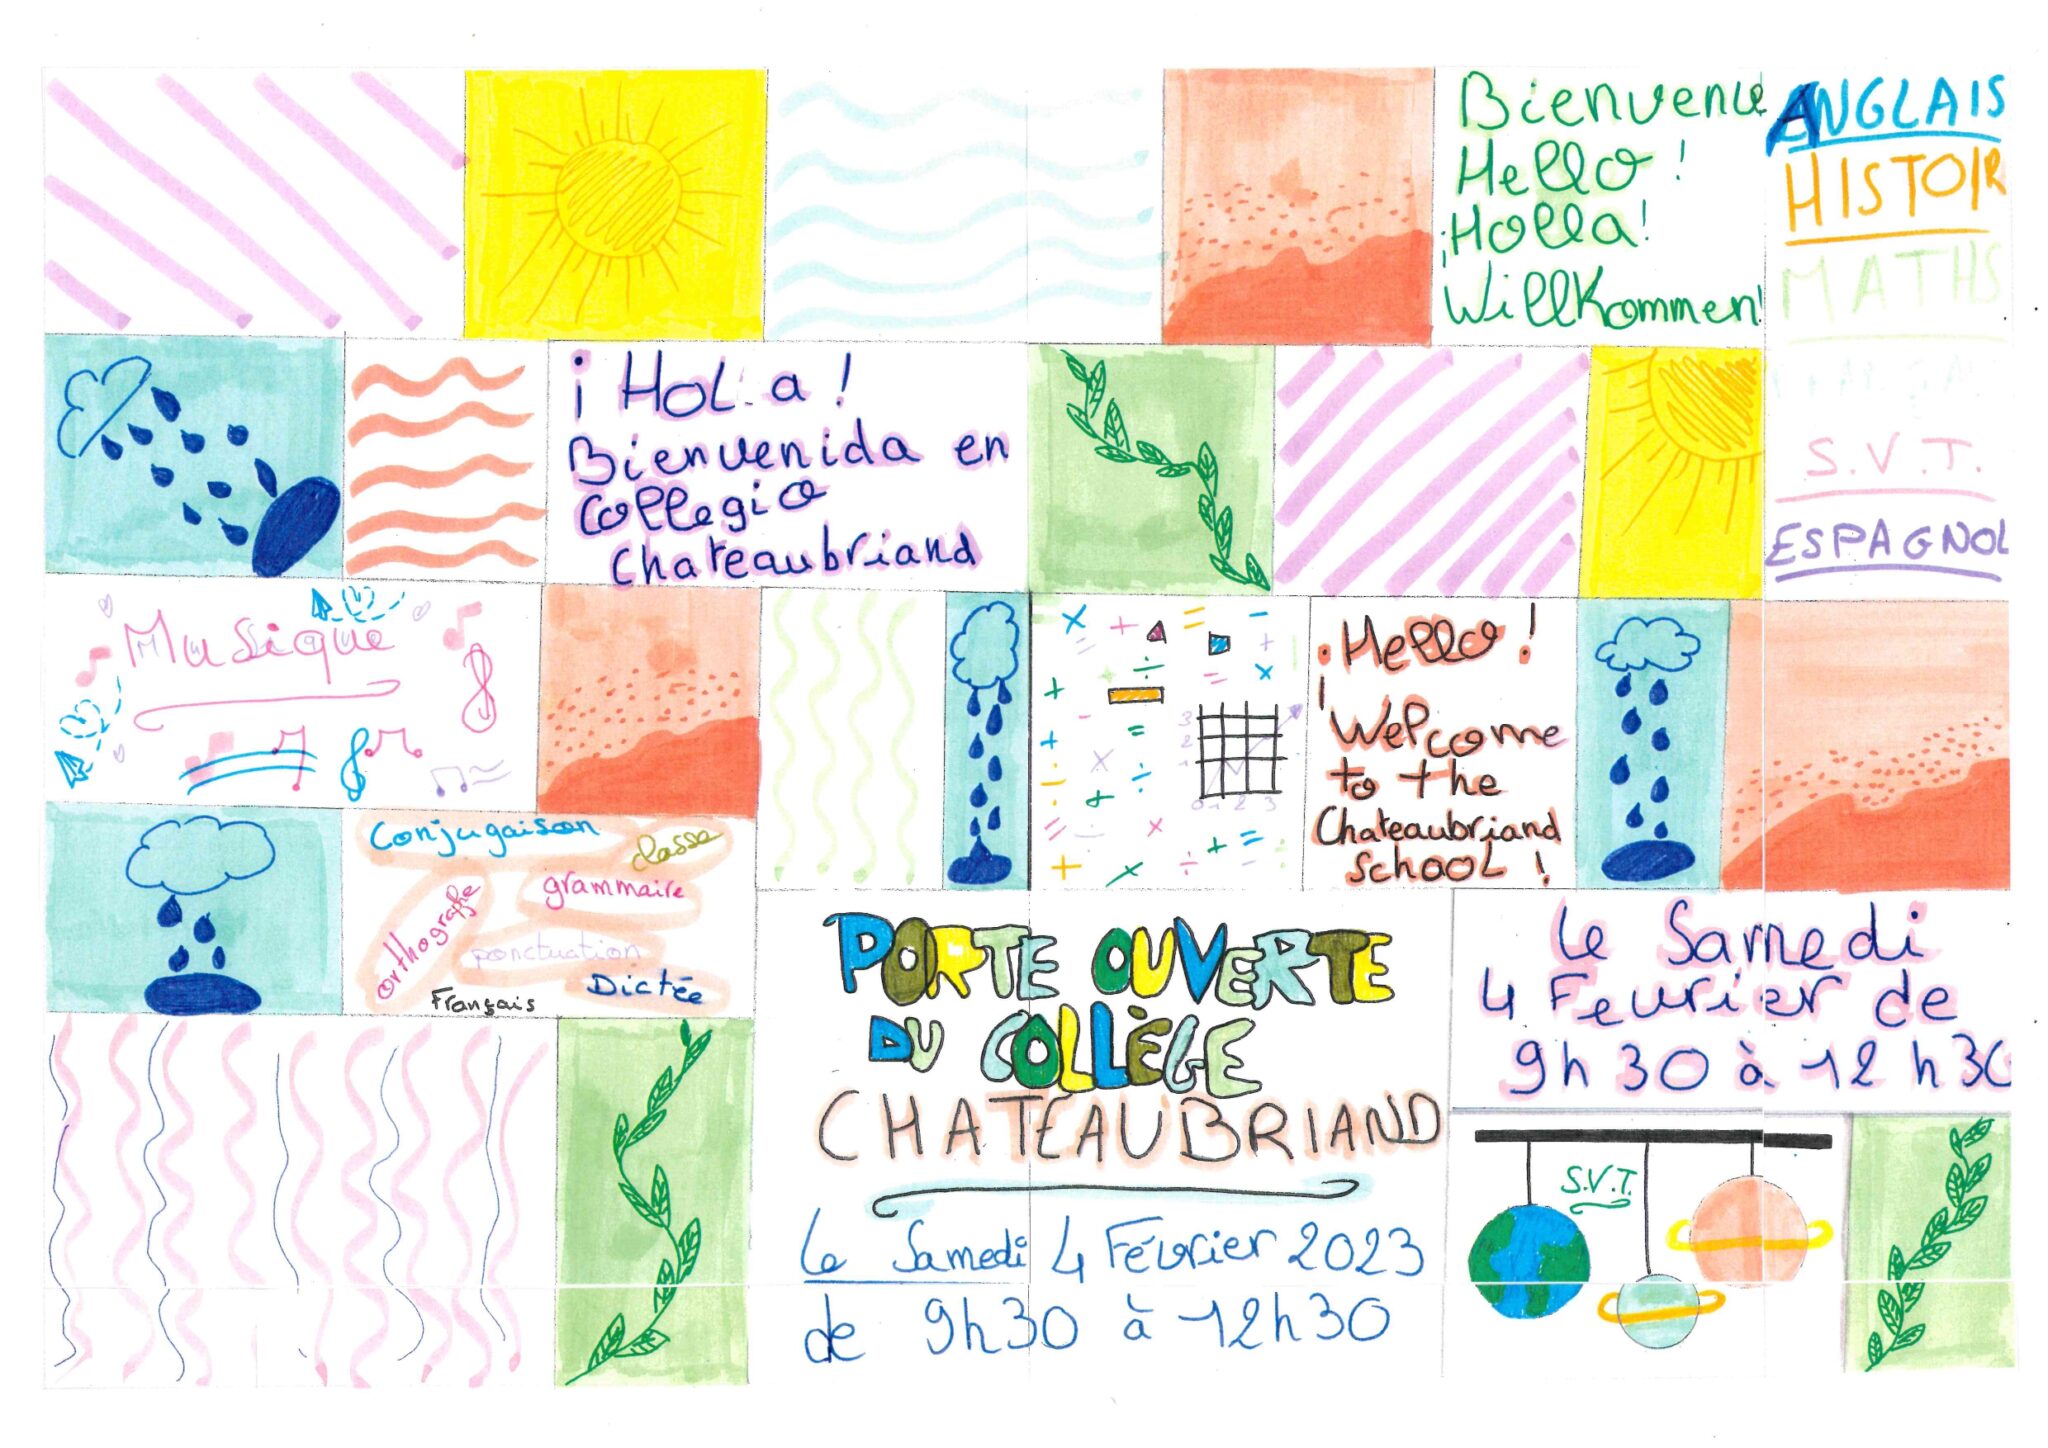 Bienvenue
Hello !
¡Holla!
Willkommen!
ANGLAIS
HISTOIR
MATHS
S.V.T.
ESPAGNOL
¡ HoL a !
Bienvenida en
Collegio
Chateaubriand
Musique
3
2
1
0 1 2 3
¡ Hello !
¡ Welcome
to the
Chateaubriand
School !
Conjugaison
classe
orthographe
grammaire
ponctuation
Français
Dictée
PORTE OUVERTE
DU COLLÈGE
CHATEAUBRIAND
Le Samedi 4 Février 2023
de 9h30 à 12h30
Le Samedi
4 Fevrier de
9h 30 à 12 h 30
S.V.T.